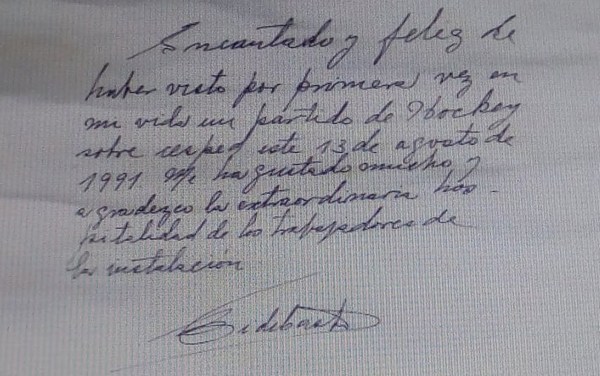 Encantado y feliz de
haber visto por primera vez en
mi vida un partido de Hockey
sobre cesped este 13 de agosto de
1991. Me ha gustado mucho y
agradezco la extraordinaria hos-
pitalidad de los trabajadores de
la instalación